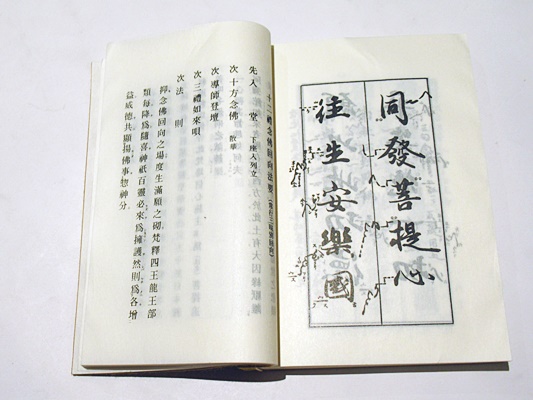 同發菩提心
往生安樂國
十二禮念佛回向法要
先入堂 下座入列立
次十方念佛 散華
次導師登壇
次三禮如來唄
次法則
抑念佛回向之場度生滿願之砌梵釋四王龍王部
類每降爲隨喜神祇百靈必來爲擁護然則爲各增
益威德共顯揚佛事惣神分